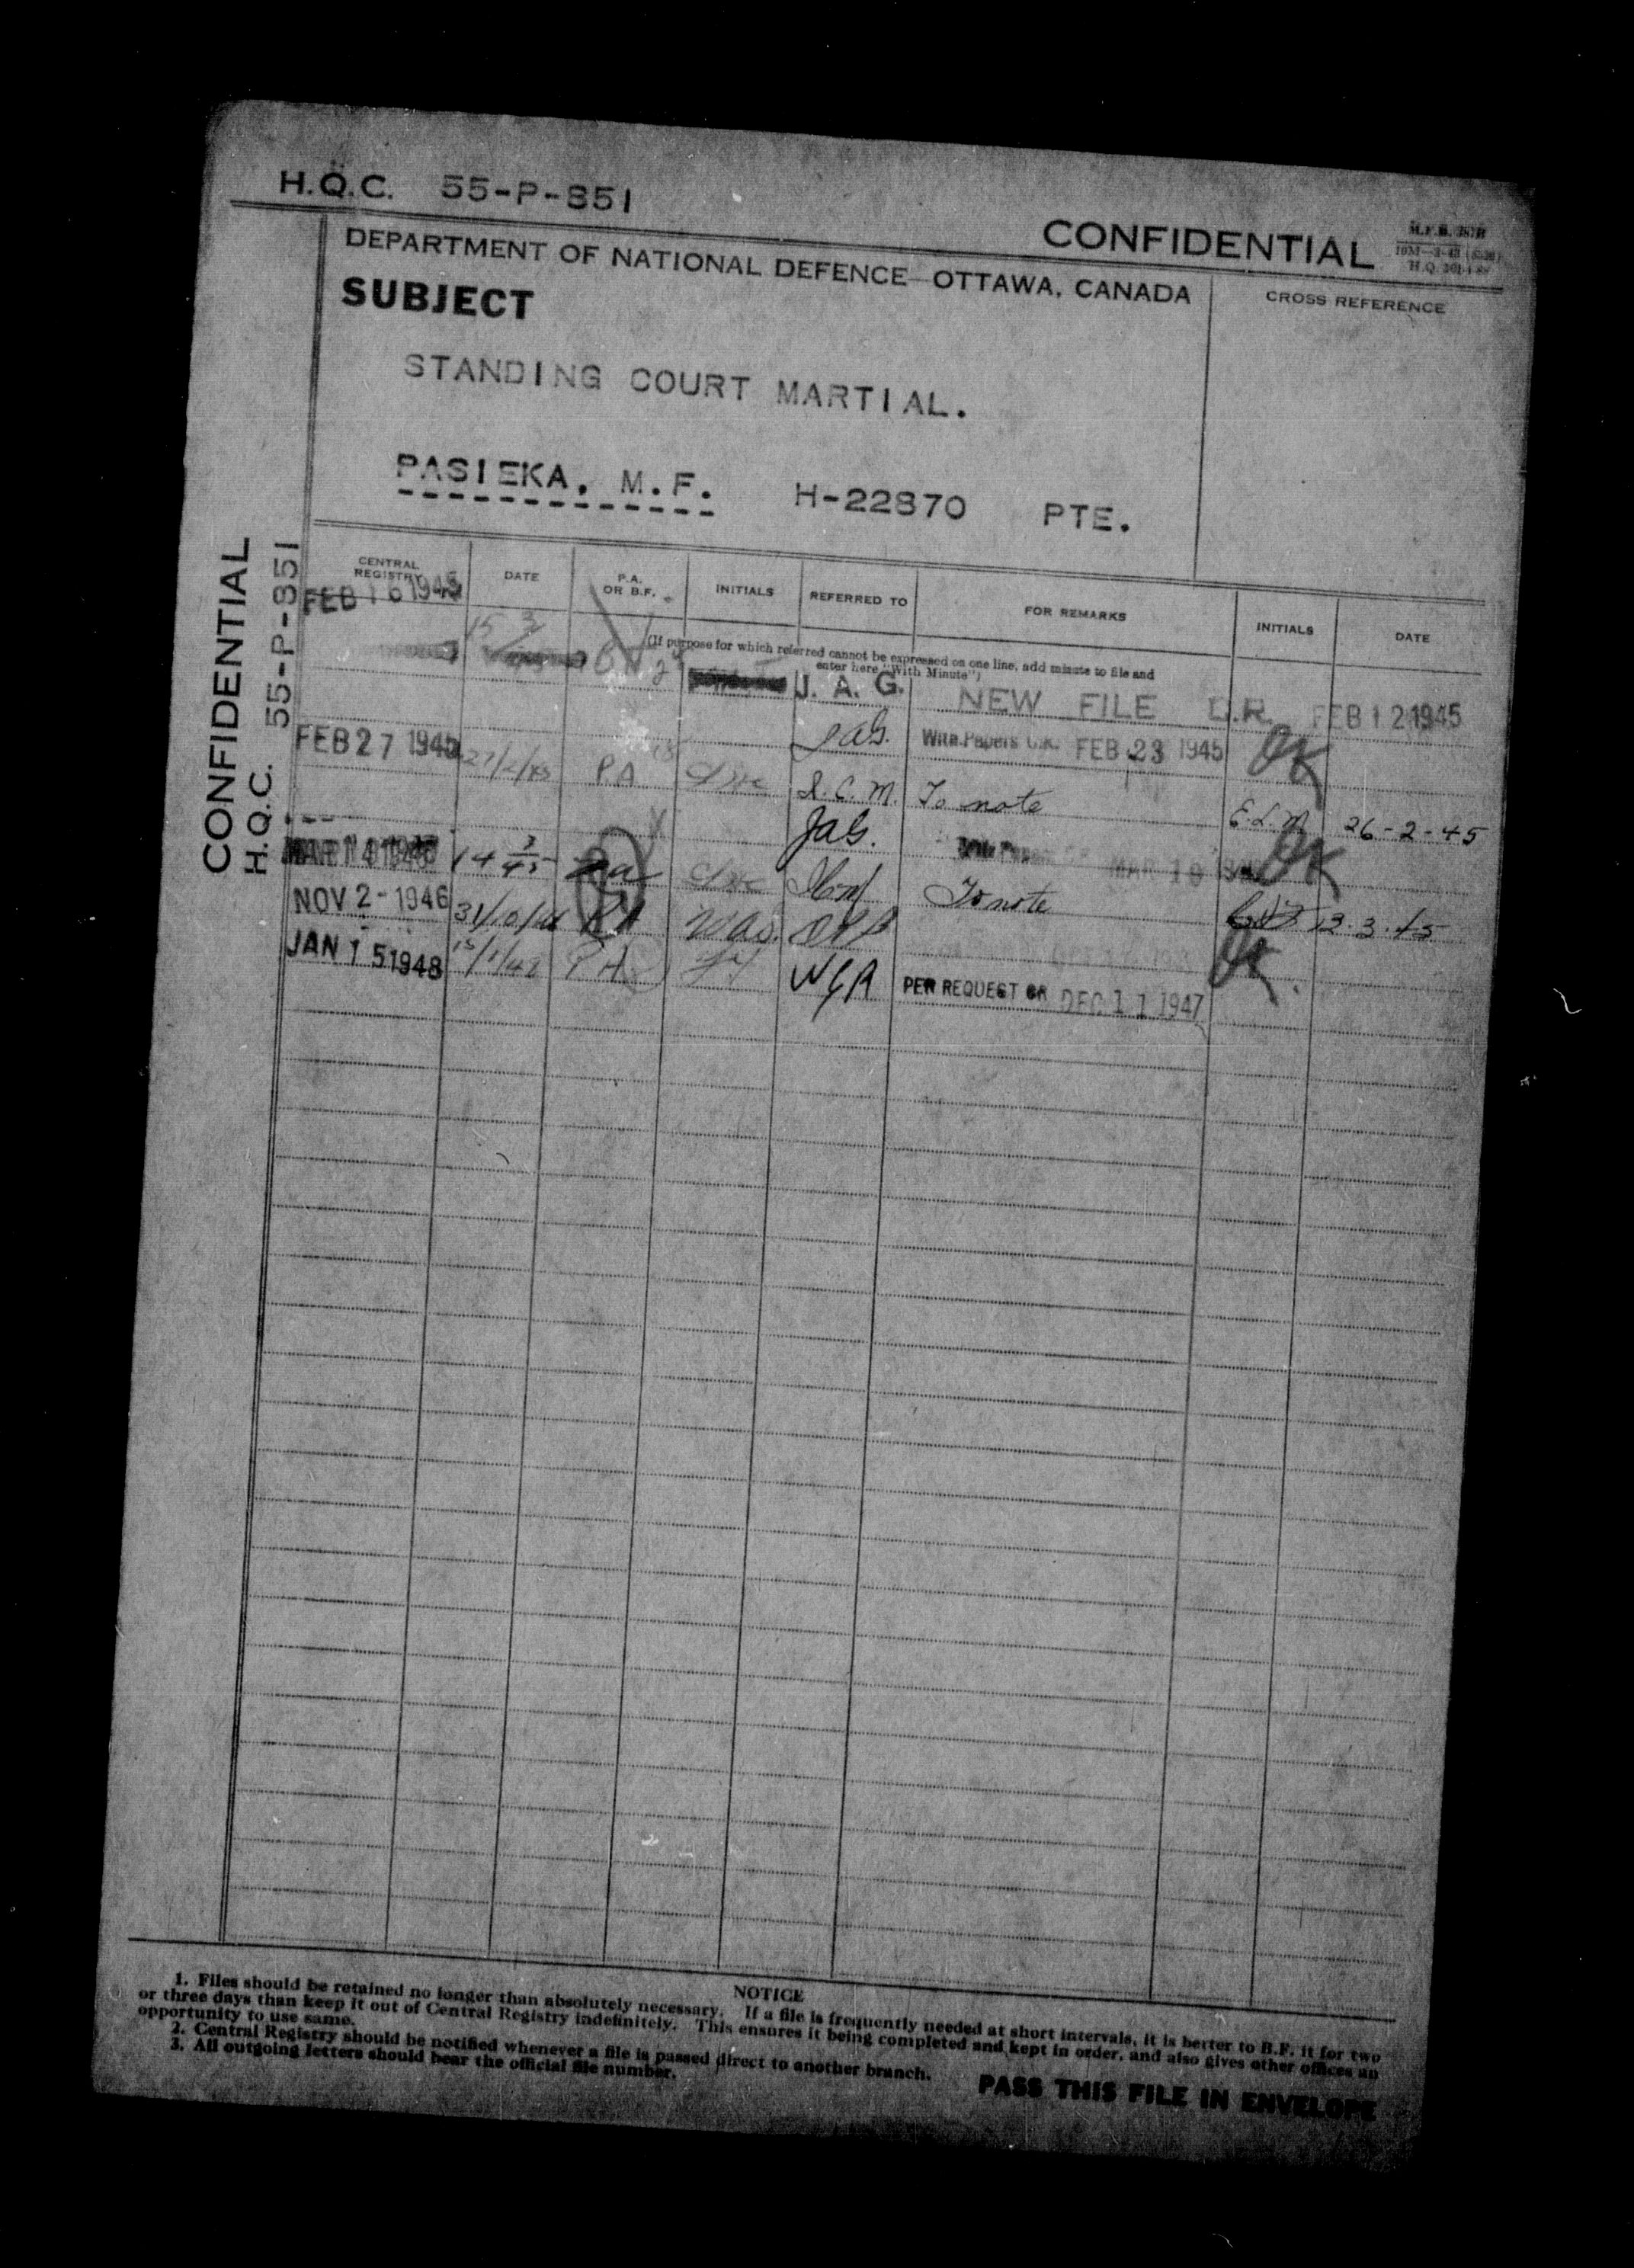 H.Q.C. 55-P-851
CONFIDENTIAL
DEPARTMENT OF NATIONAL DEFENCE—OTTAWA, CANADA
CROSS REFERENCE
SUBJECT
STANDING COURT MARTIAL.
PASIEKA, M.F. H-22870 PTE.
CONFIDENTIAL
H.Q.C. 55-P-851
CENTRAL REGISTRY DATE P.A. OR B.F. INITIALS REFERRED TO FOR REMARKS INITIALS DATE
FEB 16 1945
(If purpose for which referred cannot be expressed on one line, add minute to file and
enter here "With Minute")
15 3
J. A. G. NEW FILE FEB 12 1945
JAG. With Papers FEB 23 1945 OK
FEB 27 1945 27/2/45 P.A. S.C.M. To note E.L.M. 26-2-45
JAG. MAR 10 OK
14 3/45 PA To note 13.3.45
NOV 2 - 1946 31/10/46 PA OK
JAN 15 1948 15/1/48 PA PER REQUEST CR DEC 11 1947
NOTICE
1. Files should be retained no longer than absolutely necessary. If a file is frequently needed at short intervals, it is better to B.F. it for two
or three days than keep it out of Central Registry indefinitely. This ensures it being completed and kept in order, and also gives other offices an
opportunity to use same.
2. Central Registry should be notified whenever a file is passed direct to another branch.
3. All outgoing letters should bear the official file number.
PASS THIS FILE IN ENVELOPE